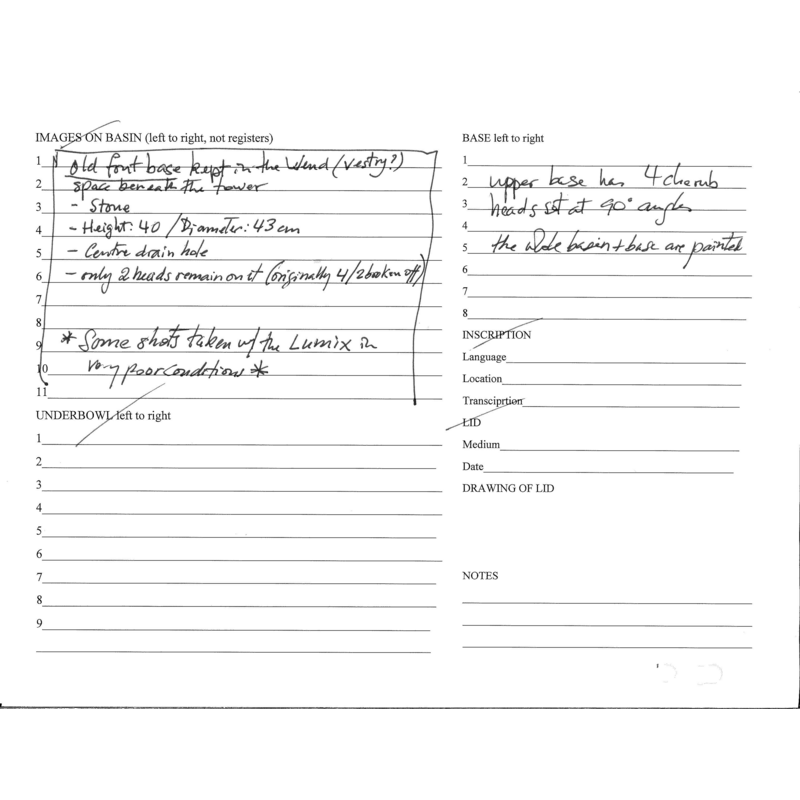 IMAGES ON BASIN (left to right, not registers)
1 Old font base kept in the Wend (vestry?)
2 space beneath the tower
3 - Stone
4 - Height: 40 / Diameter: 43 cm
5 - Centre drain hole
6 - only 2 heads remain on it (originally 4/2 broken off)
7
8
9 * Some shots taken w/ the Lumix in
10 very poor conditions *
11
UNDERBOWL left to right
1
2
3
4
5
6
7
8
9
BASE left to right
1
2 upper base has 4 cherub
3 heads set at 90° angles
4
5 the whole basin + base are painted
6
7
8
INSCRIPTION
Language
Location
Transciprtion
LID
Medium
Date
DRAWING OF LID
NOTES